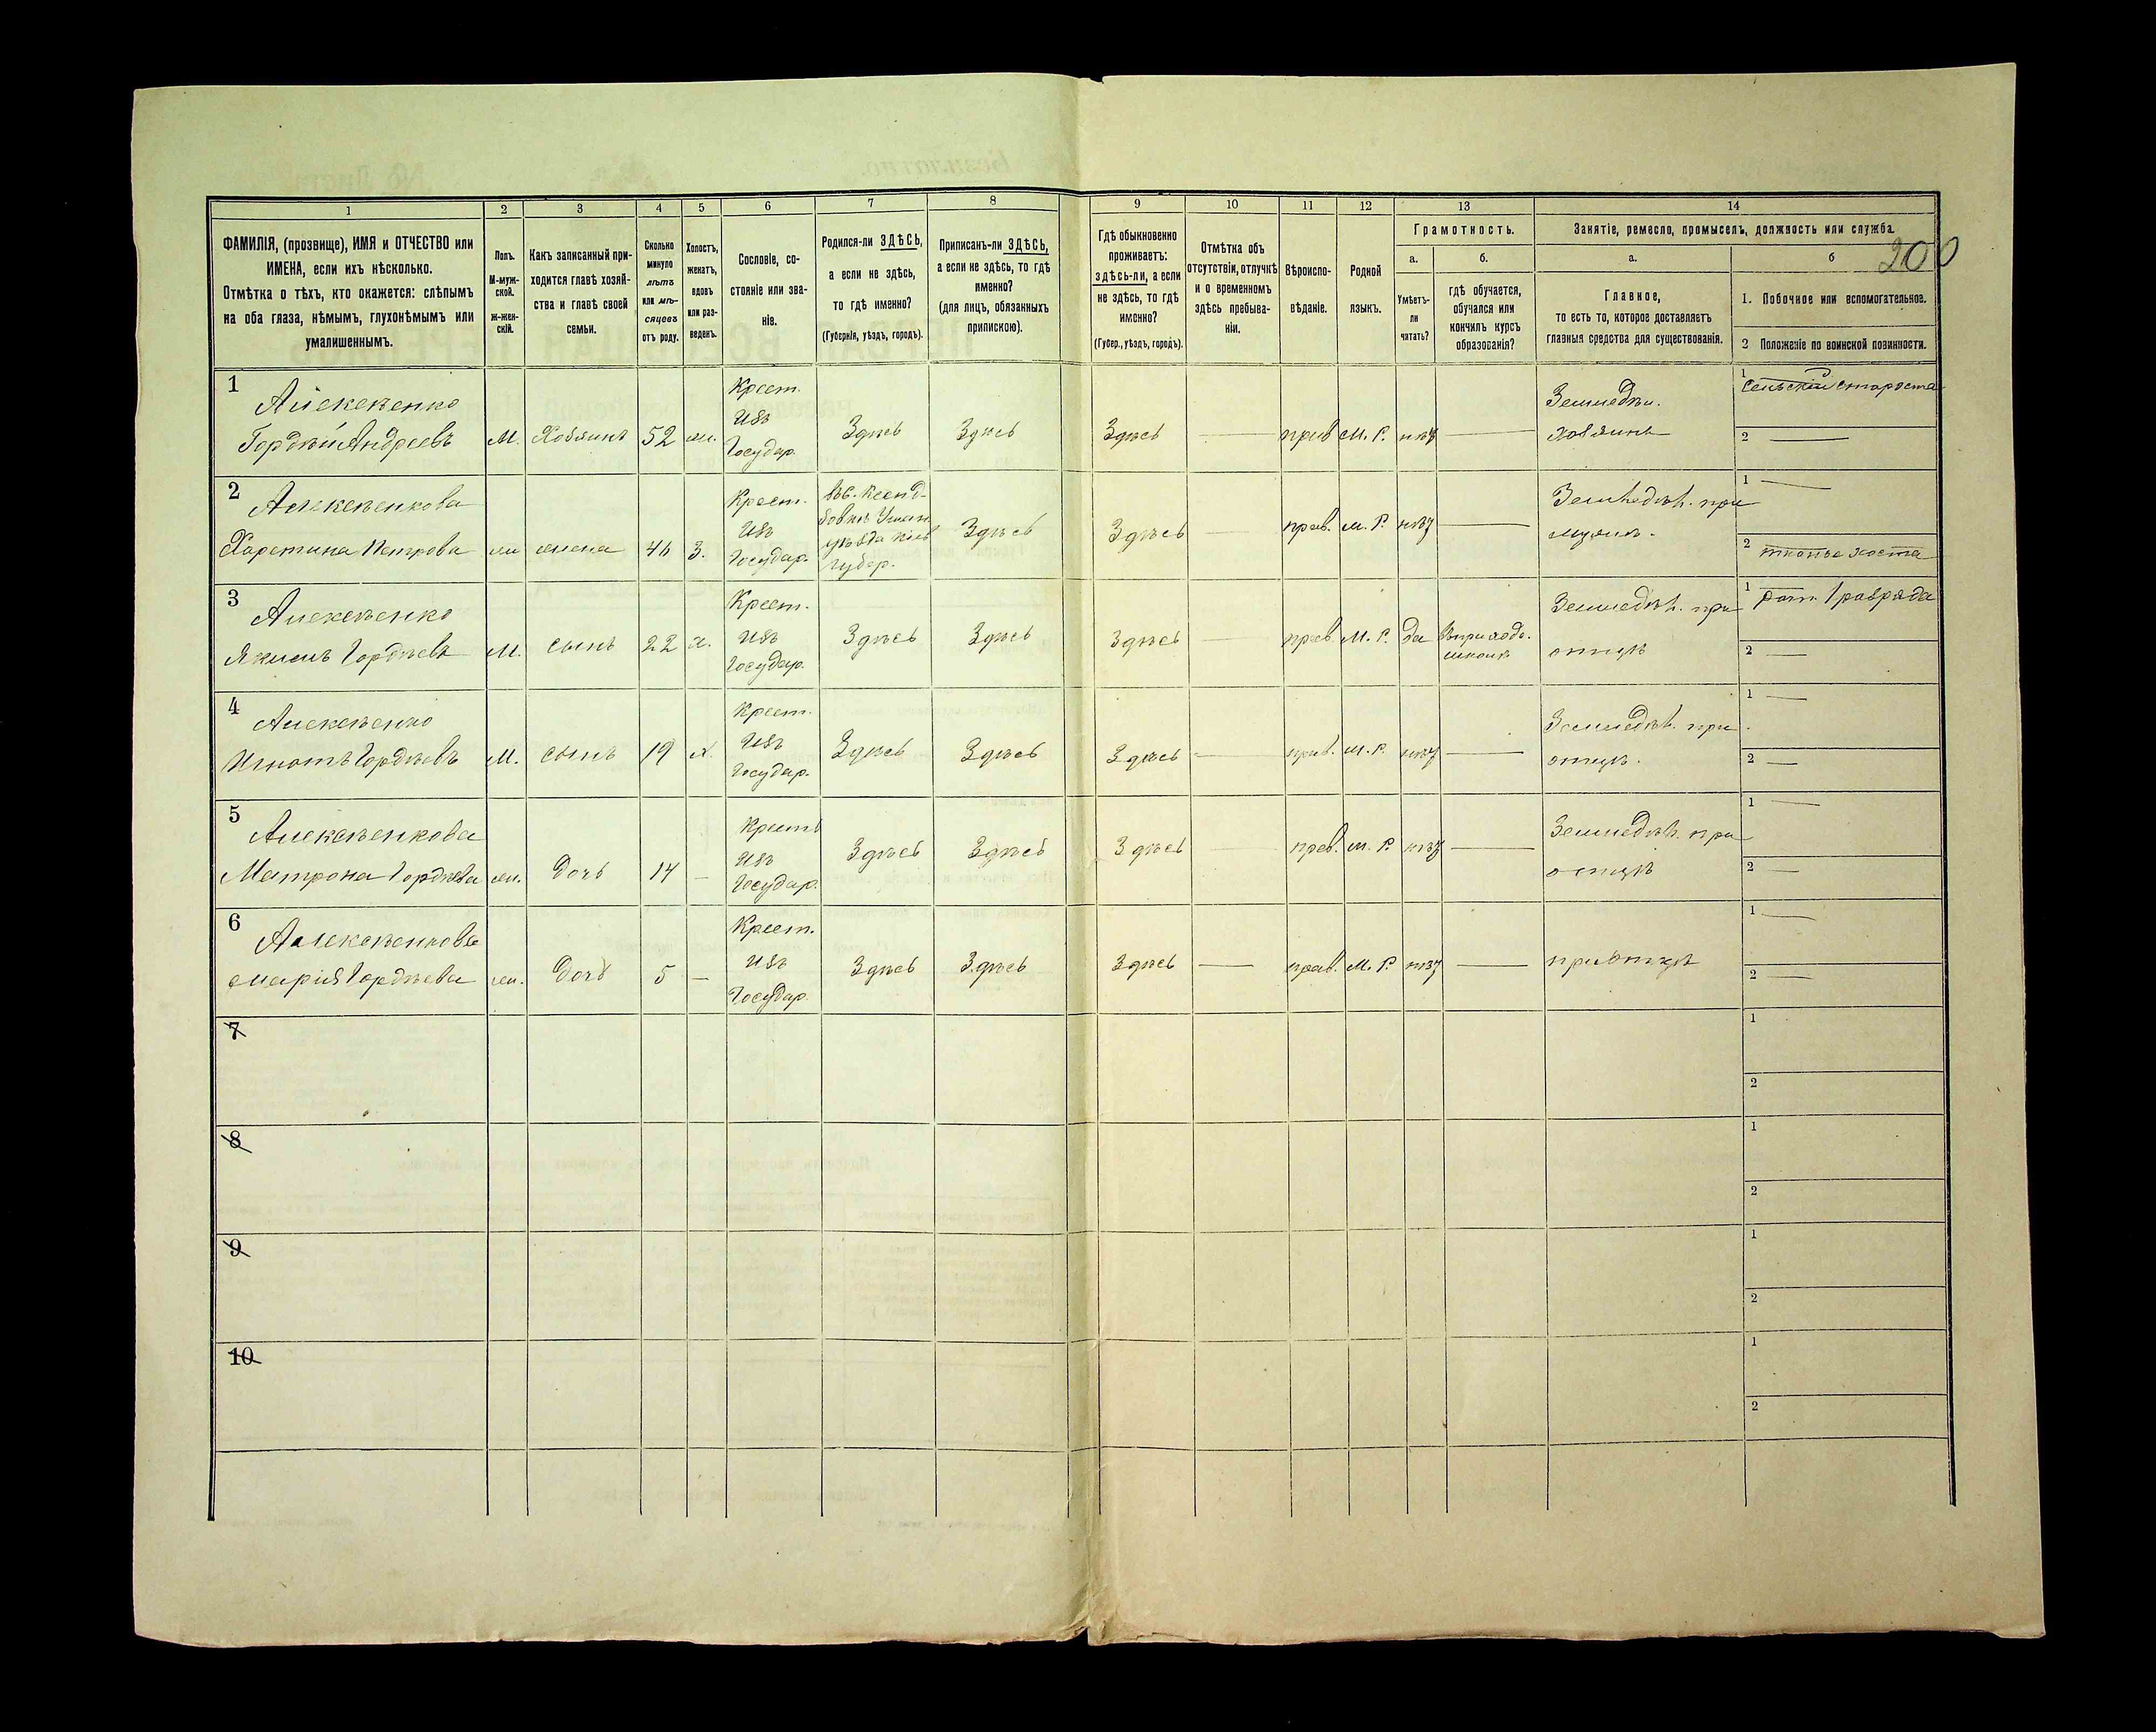 200
1 2 3 4 5 6 7 8 9 10 11 12 13 14
ФАМИЛІЯ, (прозвище), ИМЯ и ОТЧЕСТВО или
ИМЕНА, если ихъ нѣсколько.
Отмѣтка о тѣхъ, кто окажется: слѣпымъ
на оба глаза, нѣмымъ, глухонѣмымъ или
умалишеннымъ.
Полъ.
М-муж-
ской.
Ж-жен-
скій.
Какъ записанный при-
ходится главѣ хозяй-
ства и главѣ своей
семьи.
Сколько
минуло
лѣтъ
или мѣ-
сяцевъ
отъ роду.
Холостъ,
женатъ,
вдовъ
или раз-
веденъ.
Сословіе, со-
стояніе или зва-
ніе.
Родился-ли ЗДѢСЬ,
а если не здѣсь,
то гдѣ именно?
(Губернія, уѣздъ, городъ).
Приписанъ-ли ЗДѢСЬ,
а если не здѣсь, то гдѣ
именно?
(для лицъ, обязанныхъ
припискою).
Гдѣ обыкновенно
проживаетъ:
здѣсь-ли, а если
не здѣсь, то гдѣ
именно?
(Губер., уѣздъ, городъ).
Отмѣтка объ
отсутствіи, отлучкѣ
и о временномъ
здѣсь пребыва-
ніи.
Вѣроиспо-
вѣданіе.
Родной
языкъ.
Грамотность.
а.
Умѣетъ-
ли
читать?
б.
гдѣ обучается,
обучался или
кончилъ курсъ
образованія?
Занятіе, ремесло, промыселъ, должность или служба.
а.
Главное,
то есть то, которое доставляетъ
главныя средства для существованія.
б
1. Побочное или вспомогательное.
2 Положеніе по воинской повинности.
1
Алексеенко
Гордѣй Андреевъ
М. Хозяинъ 52 ж.
Крест.
Изъ
Государ.
Здѣсь Здѣсь Здѣсь — прав М. Р. нѣт —
Земледѣл.
хозяинъ
1 Сельскій староста
2 —
2
Алексѣенкова
Харетина Петрова
ж жена 46 З.
Крест.
Изъ
Государ.
уѣзда Кіев
губер.
Здѣсь Здѣсь — прав. М. Р. нѣт —
Земледѣл. при
мужѣ.
1 —
2 тканье холста
3
Алексѣенко
Якимъ Гордѣевъ
М. сынъ 22 х.
Крест.
Изъ
Государ.
Здѣсь Здѣсь Здѣсь — прав. М. Р. да
въ приходс.
школѣ
Земледѣл. при
отцѣ
1 рат. 1 разряда
2 —
4
Алексѣенко
Игнатъ Гордѣевъ
М. сынъ 19 х.
Крест.
Изъ
Государ.
Здѣсь Здѣсь Здѣсь — прав. М. Р. нѣт —
Земледѣл. при
отцѣ.
1 —
2 —
5
Алексѣенкова
Матрона Гордѣева
ж. дочь 14 —
Крест
Изъ
Государ.
Здѣсь Здѣсь Здѣсь — прав. М. Р. нѣт —
Земледѣл. при
отцѣ
1 —
2 —
6
Алексѣенкова
Марія Гордѣева
ж. дочь 5 —
Крест.
Изъ
Государ.
Здѣсь Здѣсь Здѣсь — прав. М. Р. нѣт —
при отцѣ
1 —
2 —
7
1
2
8
1
2
9
1
2
10
1
2